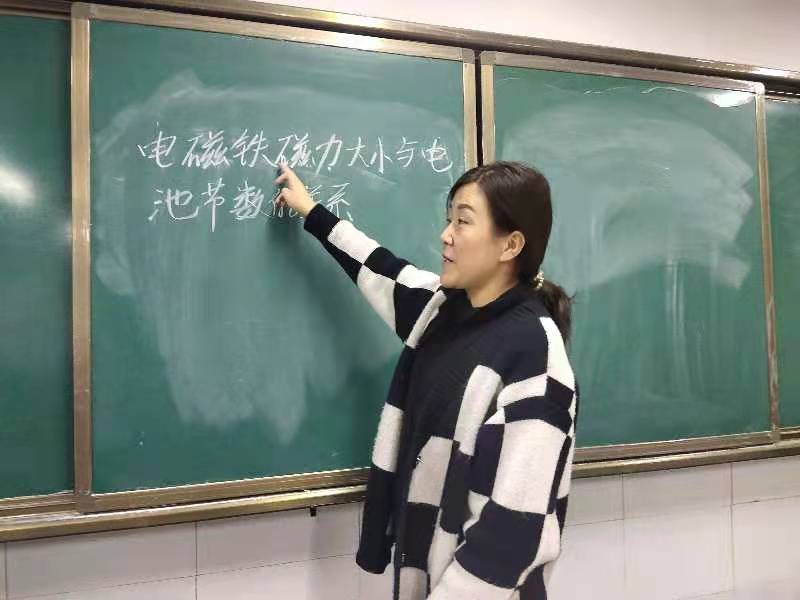 电磁铁磁力大小与电
池节数的关系